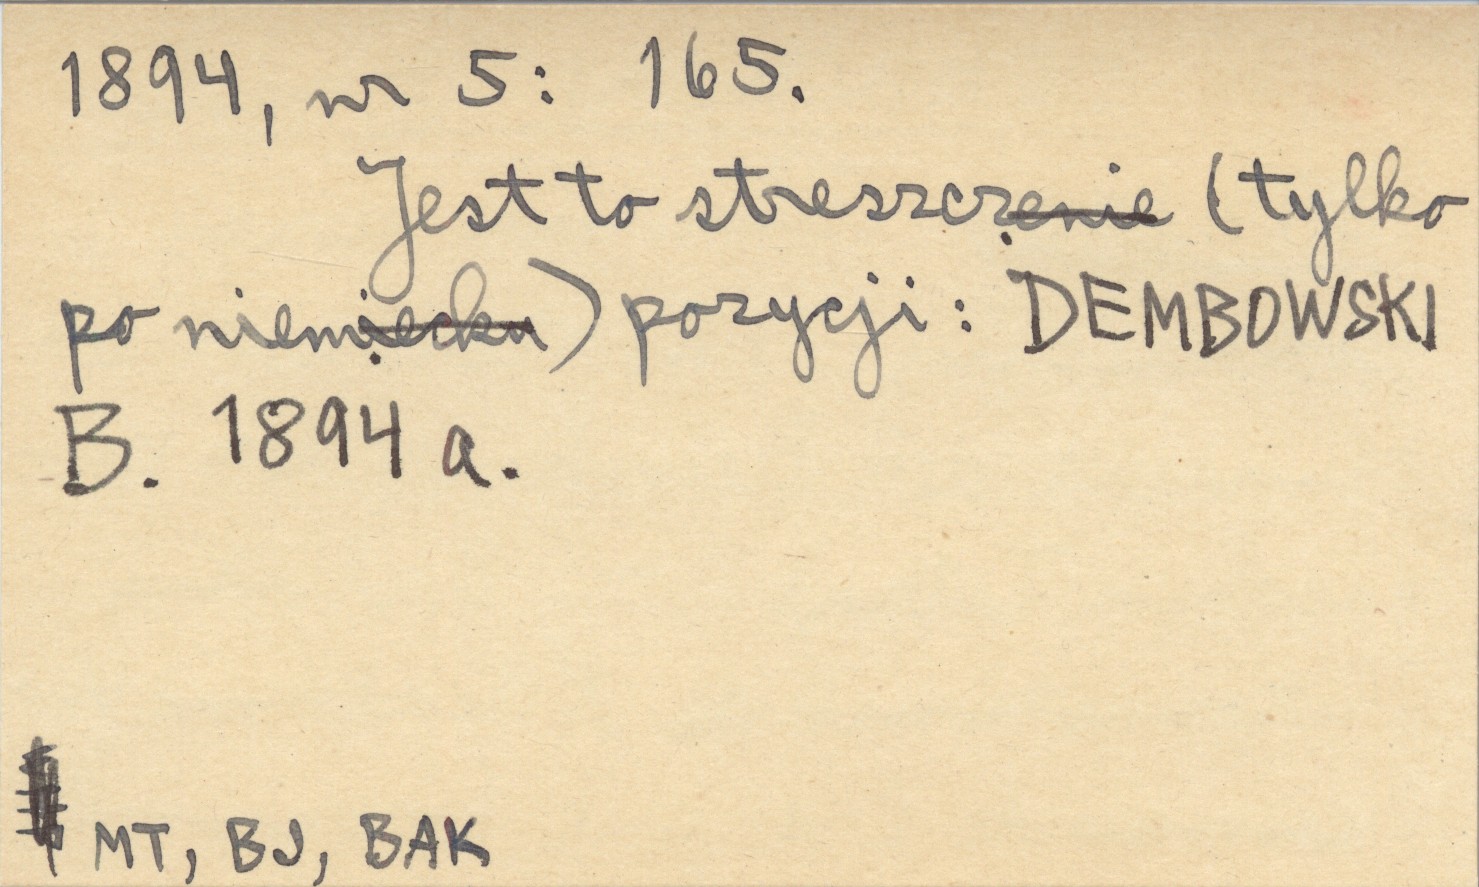 1894, nr 5: 165.
Jest to streszcz. (tylko
po niem.) pozycji: DEMBOWSKI
B. 1894 a.
MT, BJ, BAK